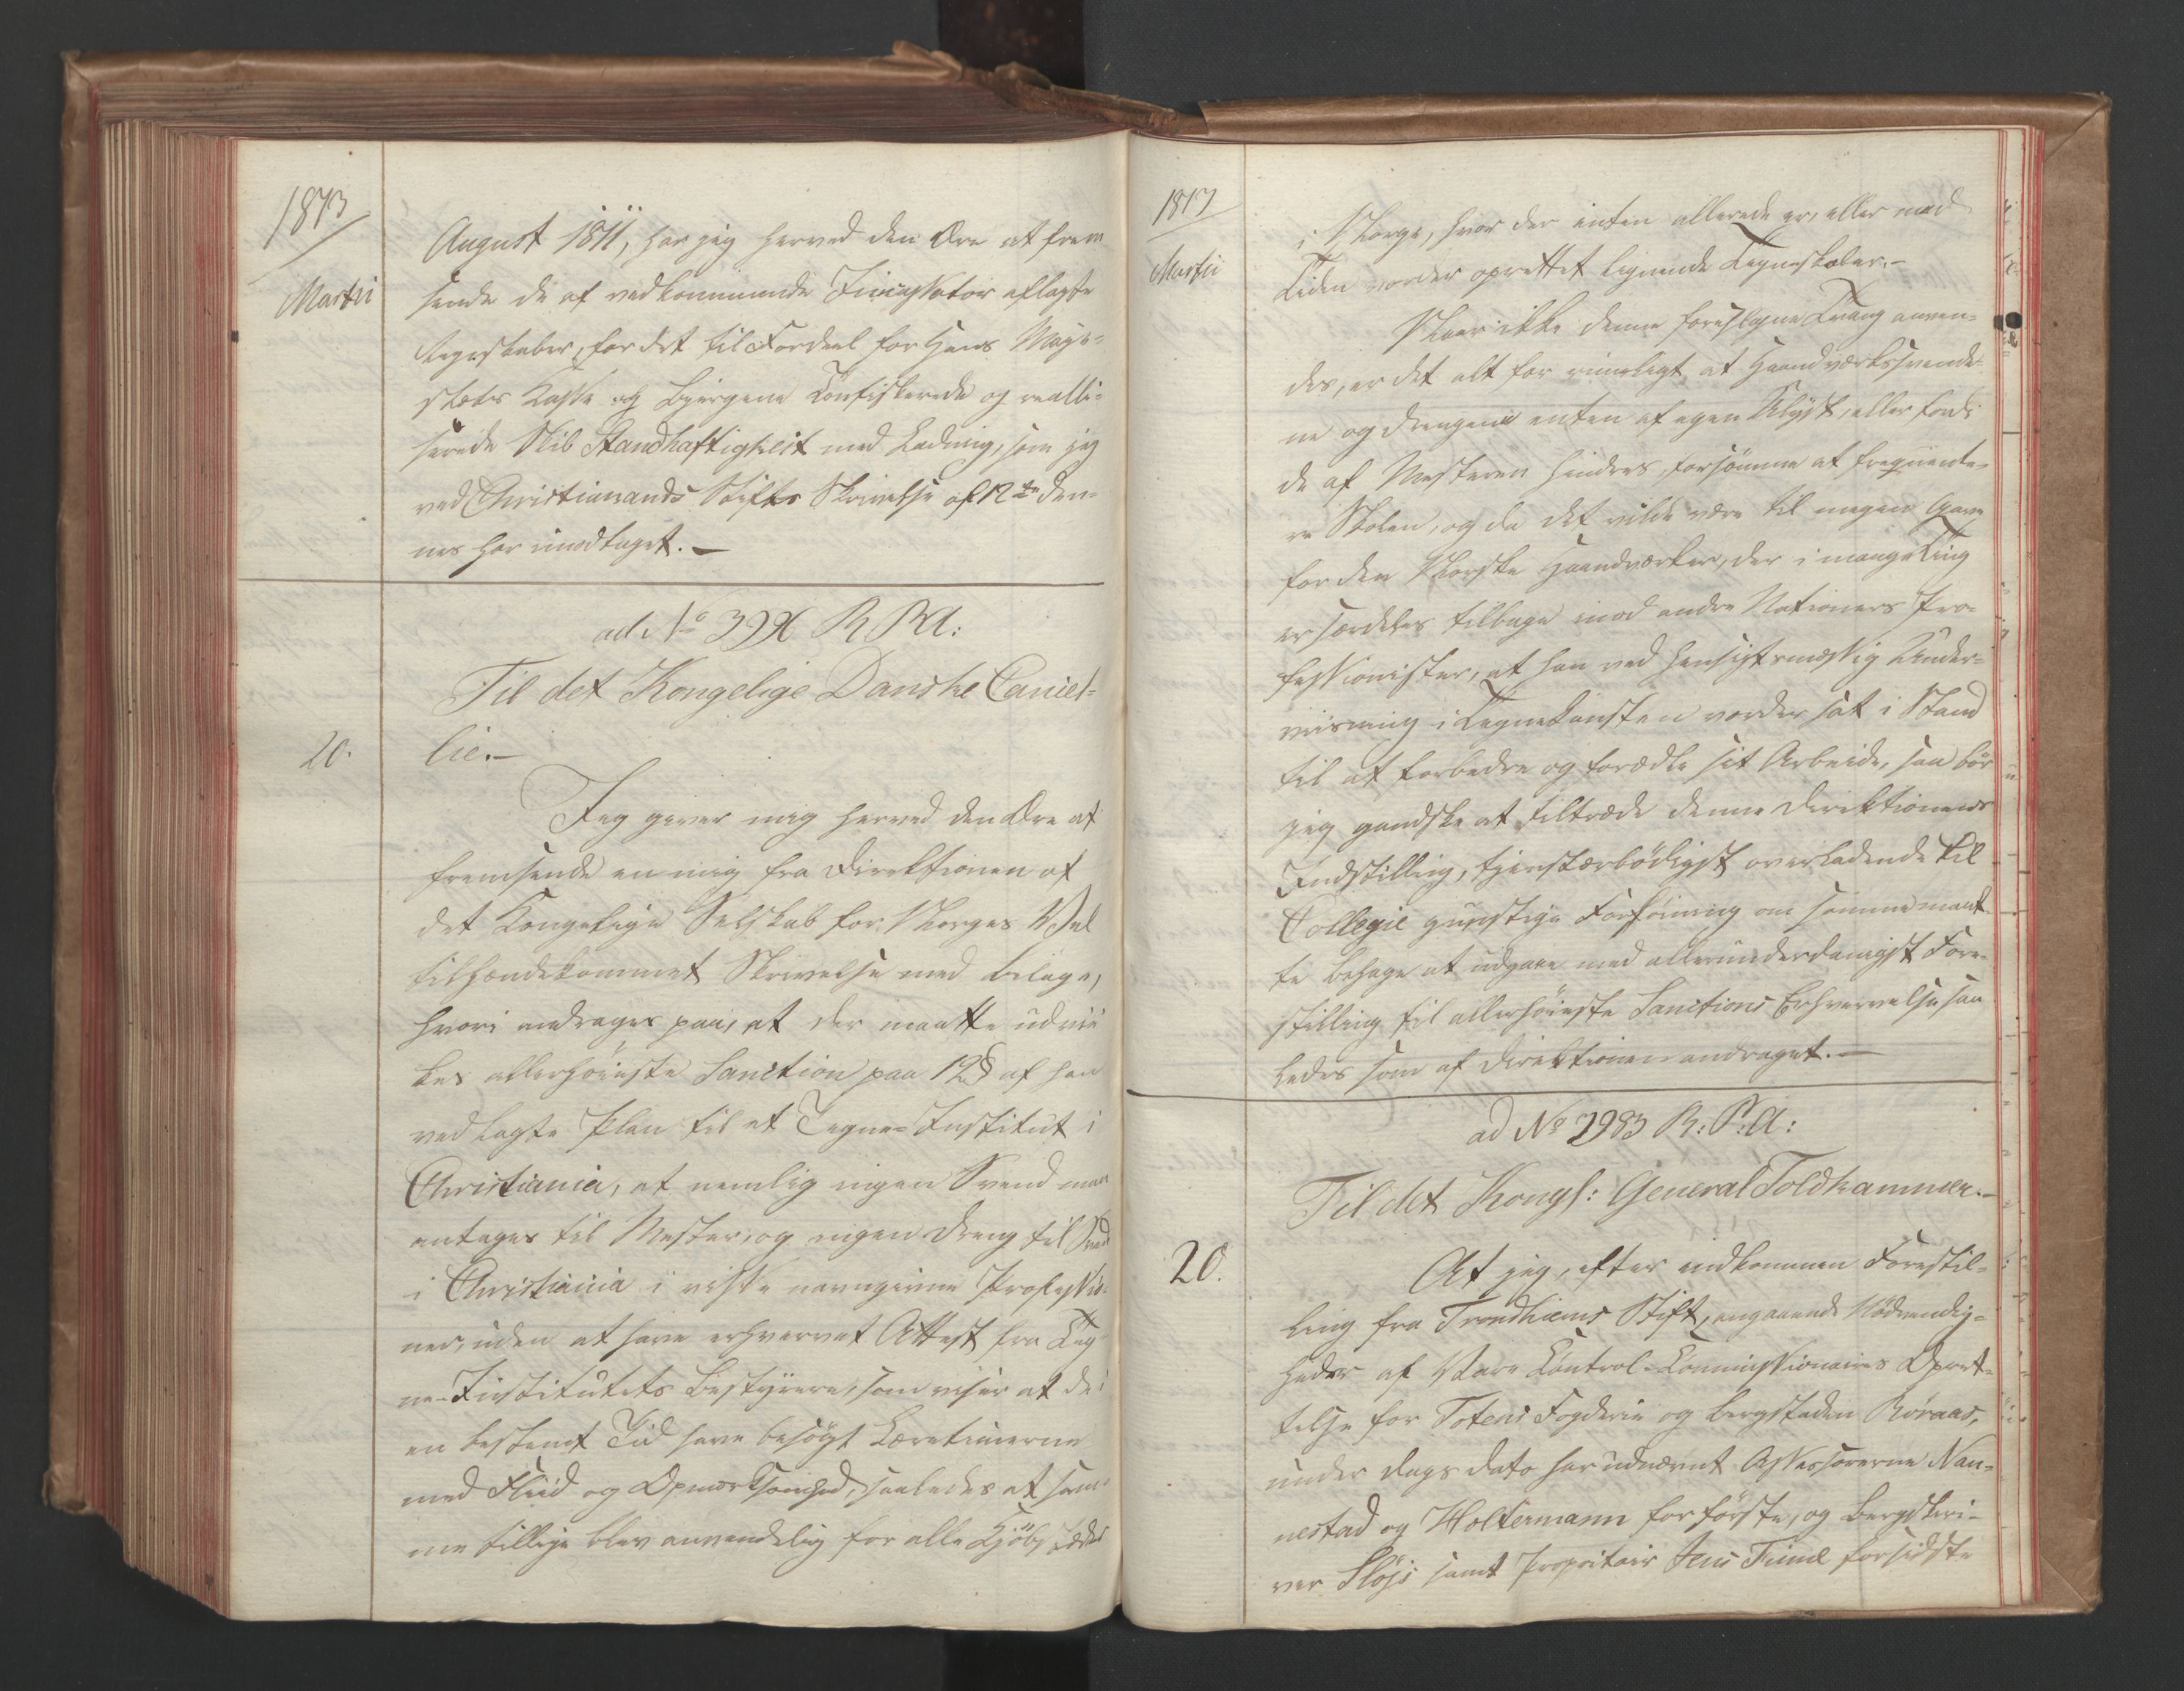 1813
Martii
August 1811, har jeg herved den Ære at frem
sende de af vedkommende Inqvisitor aflagte
Regnskaber, for det til Fordeel for Hans Maje-
stæts Kasse og Byrgene Confiskerede og realli-
serede Skib Standhaftigheit med Ladning, som jeg
ved Christiansands Stifts Skrivelse af 12te den-
nes har imodtaget.
ad No R P A:
Til det Kongelige Danske Cancel-
20.
lie.
Jeg giver mig herved den Ære at
fremsende en mig fra Direktionen af
det Kongelige Selskab for Norges Vel
tilhændekommet Skrivelse med Bilage,
hvori andrages paa, at der maatte udvir
kes allerhøieste Sanction paa 12 § af hen
vedlagte Plan til et Tegne-Institut i
Christiania, at nemlig ingen Svend maa
antages til Mester, og ingen Dreng til Svend
i Christiania i visse navngivne Professio-
ner, uden at have erhvervet Attest fra Teg
ne-Institutets Bestyrere, som viser at de i
en bestemt Tid have besøgt Læretimerne
med Fliid og Opmærksomhed, saaledes at sam-
me tillige blev anvendelig for alle Kjøbstæder
1813
Martii
i Norge, hvor der enten allerede er, eller med
Tiden vorder oprettet lignende Tegneskoler.
Naar ikke denne foreslagne Tvang anven-
des, er det alt for rimeligt at Haandværkssvende-
ne og Drengene enten af egen Ulyst, eller fordi
de af Mesteren hindres, forsømme at frequente-
re Skolen, og da det vilde være til megen Gavn
for den Norske Haandværker, der i mange Ting
er særdeles tilbage imod andre Nationers Pro-
fessionister, at han ved hensigtsmæssig Under-
viisning i Tegnekunsten vorder sat i Stand
til at forbedre og forædle sit Arbeide, saa bør
jeg gandske at tiltræde denne Direktionens
Indstilling, tjenstærbødigst overladende til
Collegie gunstige Forføining om samme maat-
te behage at udgaae med allerunderdanigst Fore-
stilling til allerhøieste Sanctions Erhvervelse saa
ledes som af Direktionen andraget.
ad No 2983 R: P: A:
Til det Kongl: General Toldkammer.
20.
At jeg, efter indkommen Forestil-
ling fra Trondhiems Stift, angaaende Nødvendig-
heden af Vare Control-Commissionairs Opret-
telse for Totens Fogderie og Bergstaden Røraas,
under Dags Dato har udnævnt Assessorerne Nan-
nestad og Holtermann for første, og Bergskri-
ver Fløjs samt Propritair Jens Finne for sidste